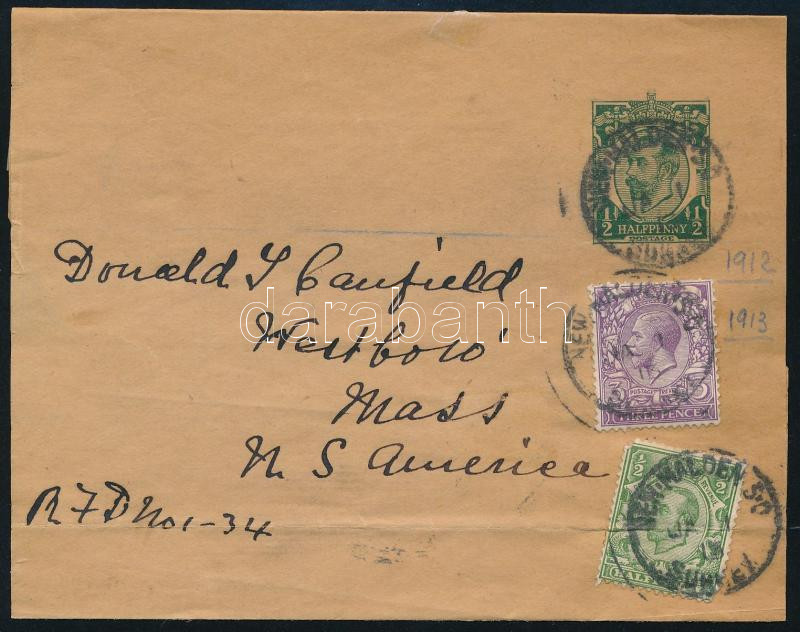 1/2 1/2
HALFPENNY
POSTAGE
1912
1913
Donald S Canfield
Westboro'
Mass
N. S America
R F D No 1-34
darabanth
NEW MALDEN S.O
POSTAGE
PENCE
1/2
NEW MALDEN S.O
SURREY
HALF